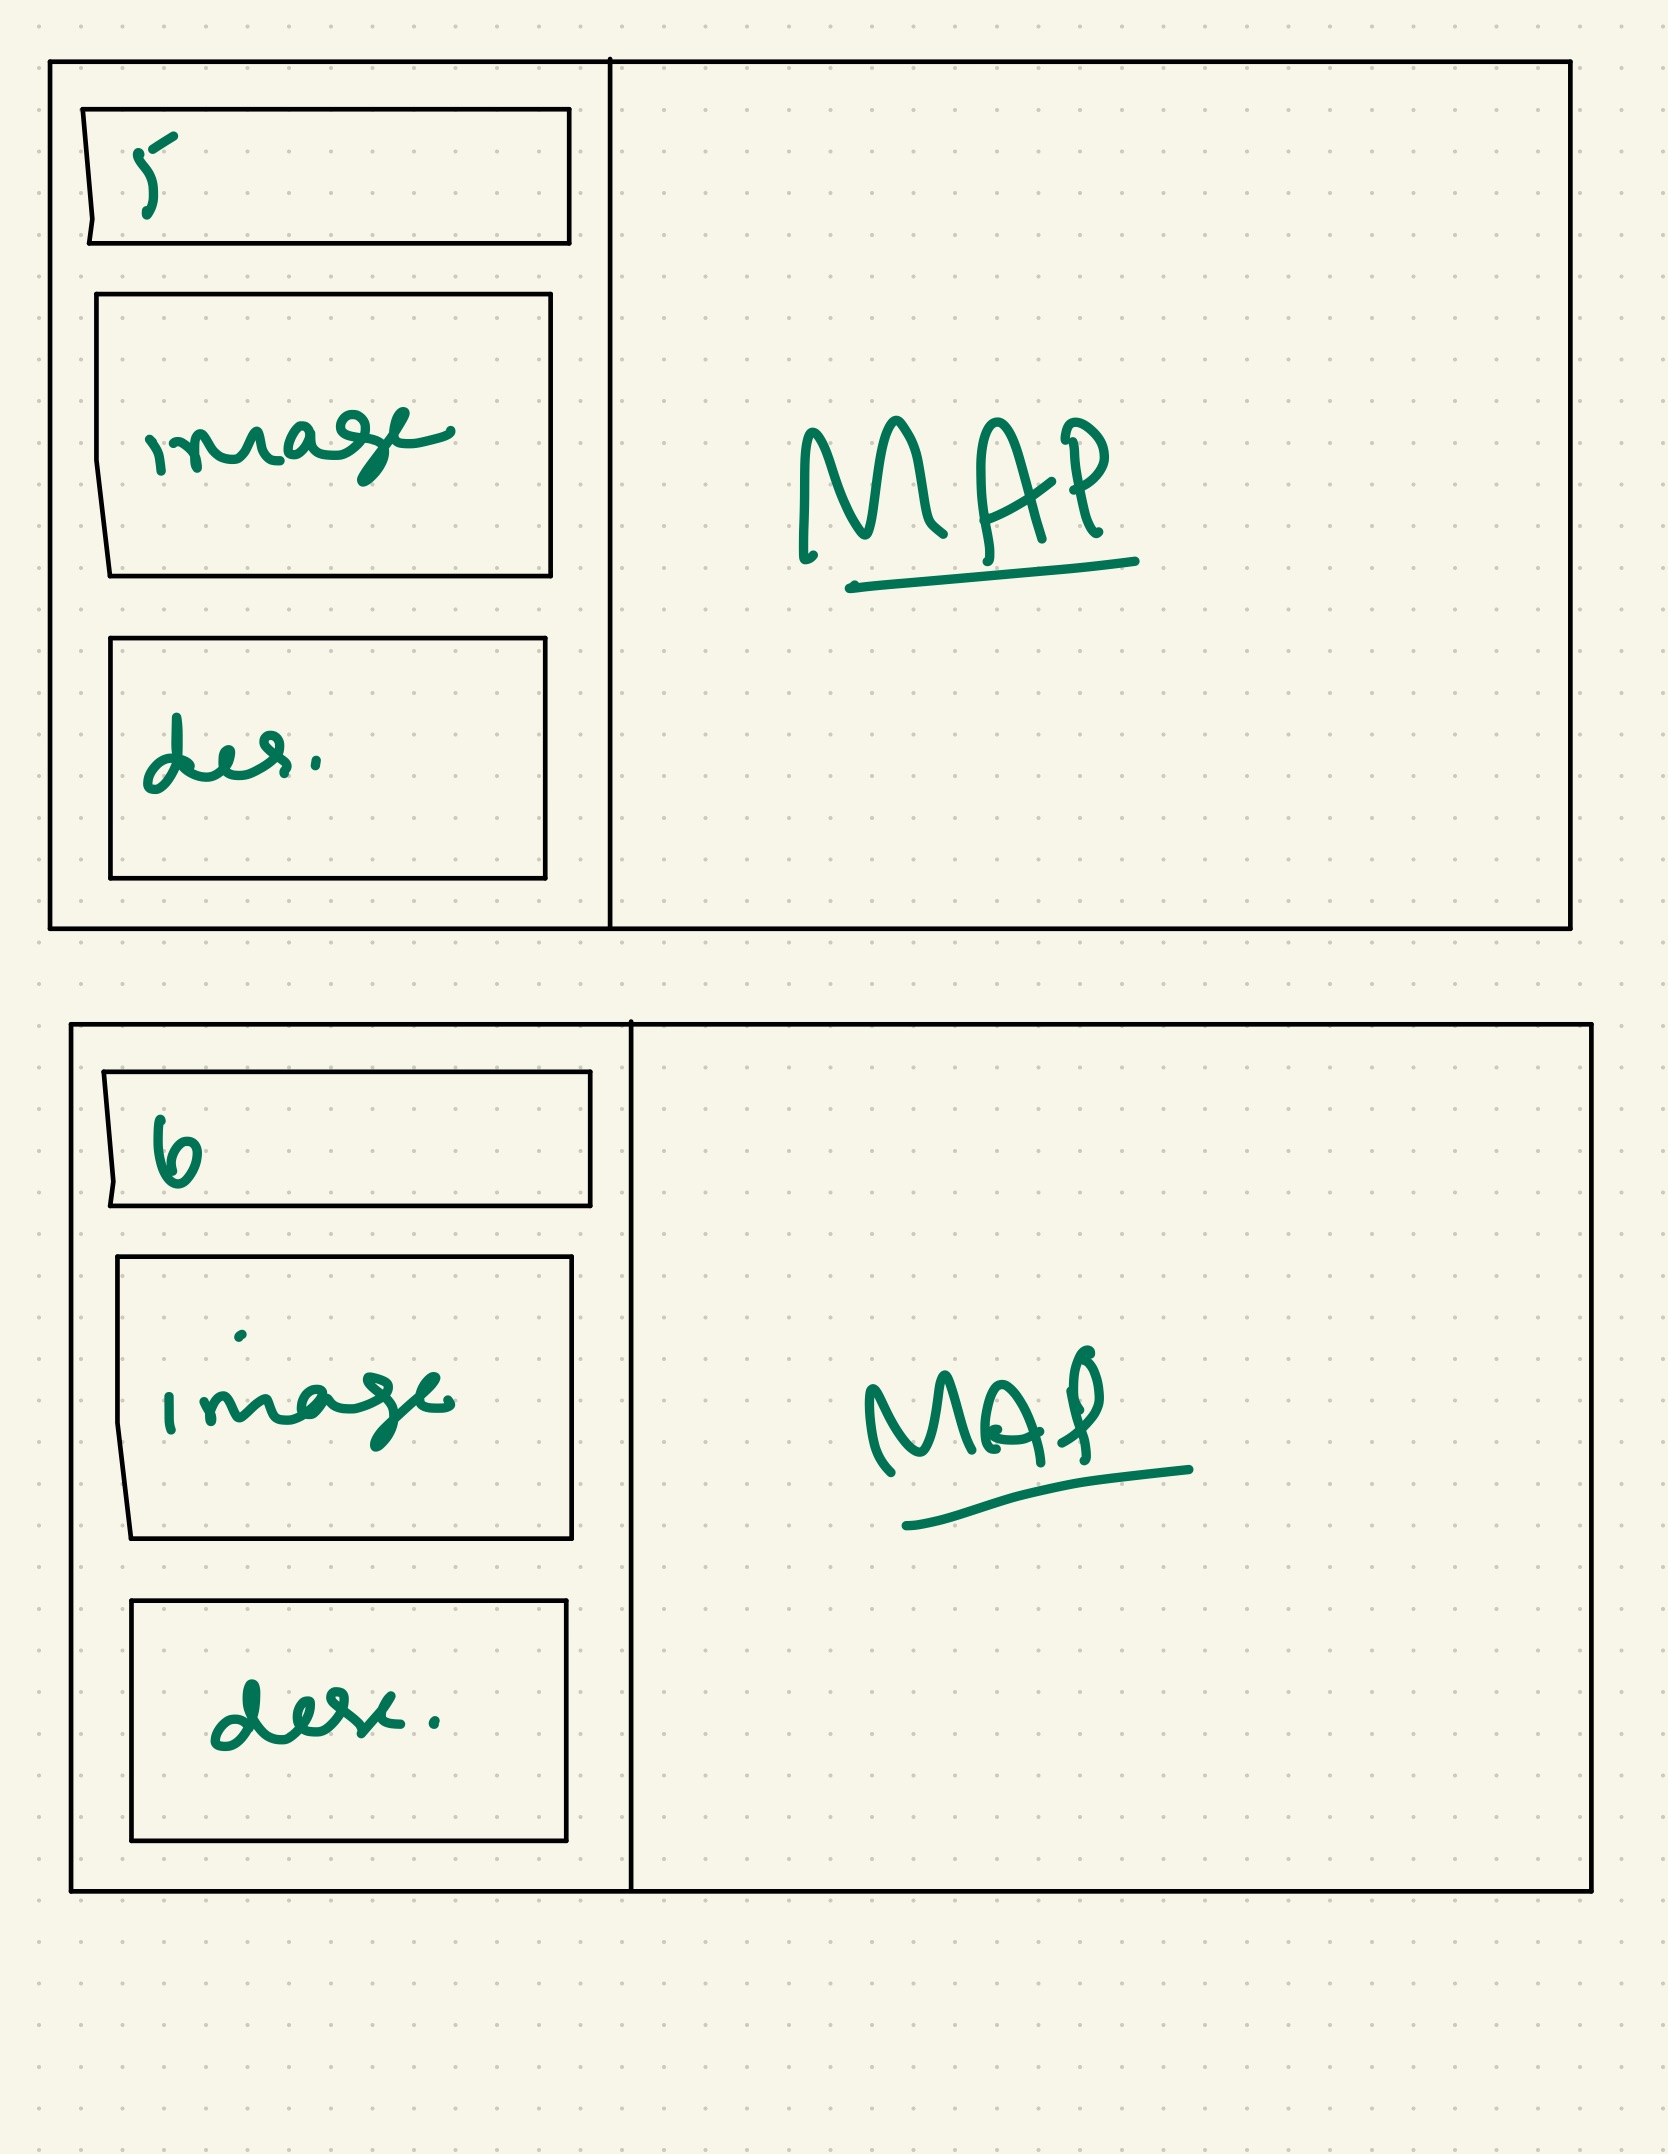 5
image
des.
MAP
6
image
desc.
MAP